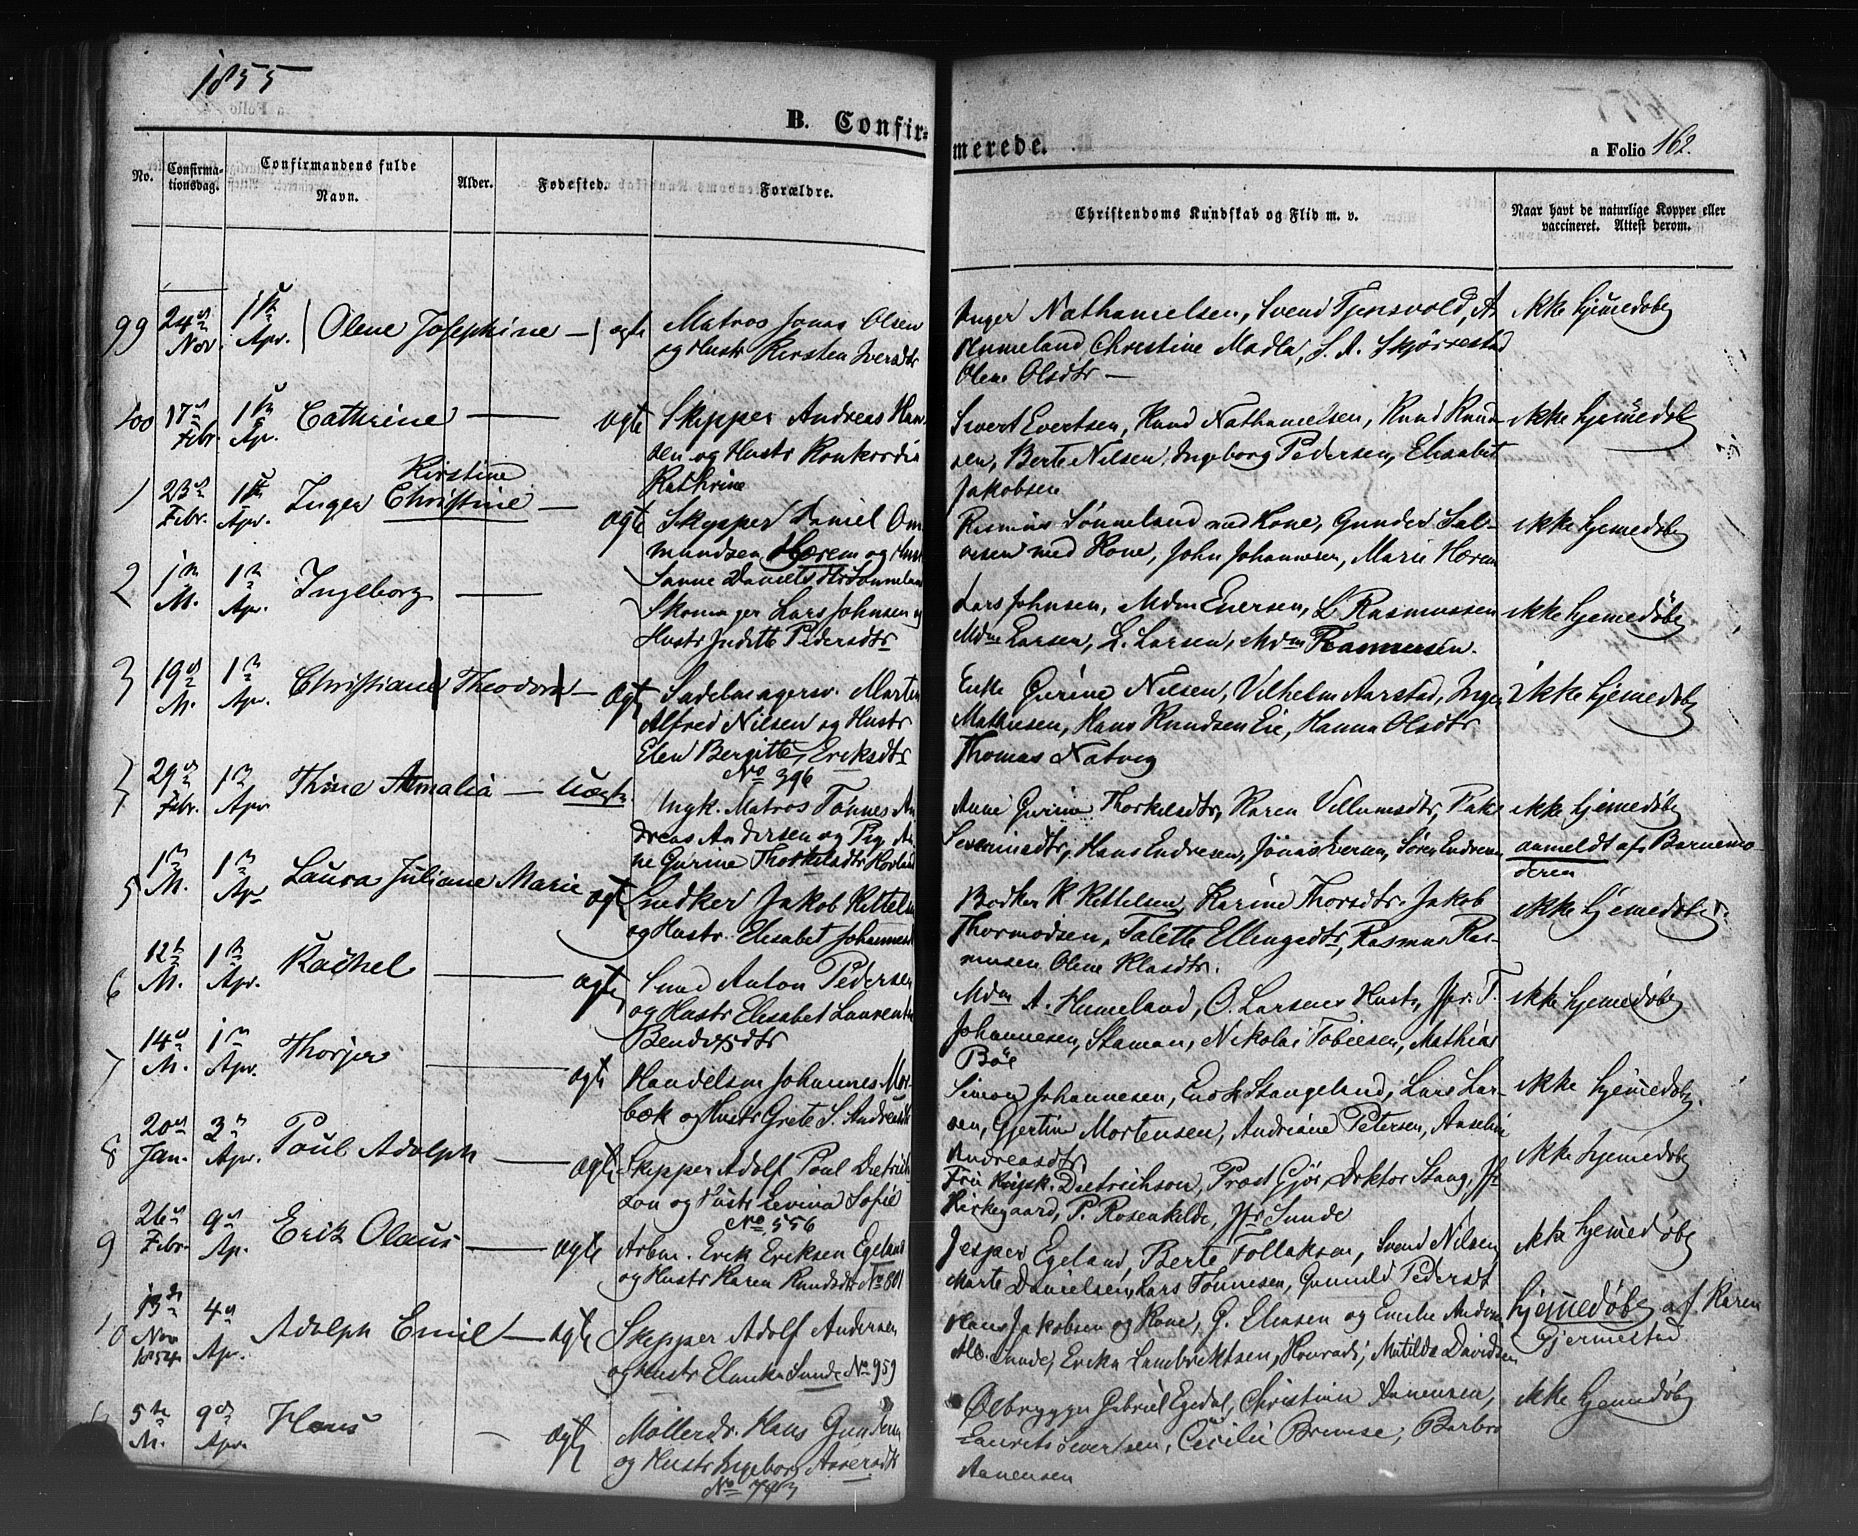 1855
B. Confir=
merede.
a Folio 162.
No.
Confirma-
tionsdag.
Confirmandens fulde
Navn.
Alder.
Fødested.
Forældre.
Christendoms Kundskab og Flid m. v.
Naar havt de naturlige Kopper eller
vaccineret. Attest derom.
99 24de Nov. 1ste Apr. Olene Josephine — ægte
Matros Jonas Olsen
og Hustr Kirsten Iversdtr
Inger Nathanielsen, Svend Tjensvold, A
Humeland, Christine Madla, S. A. Skjørrestad
Olene Olsdtr —
ikke hjemedøbt
100 17de Febr. 1ste Apr. Cathrine — ægte
Skipper Andreas Han-
sen og Hustr Konkordia
Kathrine
Sivert Evertsen, Knud Nathanielsen, Knud Knud-
sen, Berte Nilsen, Ingeborg Pedersen, Elisabet
Jakobsen
ikke hjemedøbt
1 23de Febr. 1ste Apr. Inger Christine — ægte
Kirstine
Skipper Daniel Om
mundsen Hærem og Hust
Sanne Danielsdtr Sønneland
Rasmus Sønneland med Kone, Gunder Sal-
vesen med Kone, John Johannesen, Marie Hærem
ikke hjemedøbt
2 1ste M. 1ste Apr. Ingeborg —
Skomager Lars Johnsen og
Hustr Judithe Pedersdtr
Lars Johnsen, Mdm Eversen, L Rasmussen
Mdm Larsen, L. Larsen, Mdm Rasmussen.
ikke hjemedøbt
3 19de M. 1ste Apr. Christiane Theodora — ægte
Sadelmagersv. Martin
Alfred Nilsen og Hustr
Elen Bergitte Eriksdtr
Enke Gurine Nilsen, Vilhelm Aarstad, Inger
Mathisen, Hans Knudsen Eie, Hanna Olsdtr
Thomas Natvig
ikke hjemedøbt
29de Febr. 1ste Apr Thine Amalia — uægte
No 396
Ungk. Matros Tønnes An
dreas Andersen og Pig. An
ne Gurine Thorkelsdtr Hovland
Anne Gurine Thorkelsdtr, Karen Villumsdtr,
Severinsdtr, Hans Endresen, Jonas Iversen, Søren Endresen
ikke hjemedøbt
anmeldt af Barnemo-
deren
5 1ste M. 1ste Ap Laura Juliane Marie ægte
Snedker Jakob Kittelsen
og Hustr. Elisabet Johannesd
Bødker K Kettelsen, Karine Thorsdtr, Jakob
Thormodsen, Talette Ellingsdtr, Rasmus Ras-
mussen Olene Klasdtr.
ikke hjemedøbt
6 12te M. 1ste Apr. Rachel — ægte
Smed Anton Pedersen
og Hustr Elisabet Laurentse
Bendixsdtr
Mdm A. Humeland, O. Larsens Hustr, Jfr. T.
Johannesen, Staman, Nikolai Tobiesen, Mathias
Bøe
ikke hjemedøbt
7 14de M. 1ste Apr. Thorjer — ægte
Handelsm Johannes Mor-
bæk og Hustr Grete S. Andreasdtr
Simon Johannesen, Enok Stangeland, Lars Lar-
sen, Gjertine Mortensen, Andriane Petersen, Anseline
Andreasdtr
ikke hjemedøbt
8 20de Jan. 3die Apr. Poul Adolph — ægte
Skipper Adolf Poul Dietrich
son og Hustr Levina Sofie
No 556
Fru Dietrichson, Prost Gjør, Doktor Stang, Jfr
Kirkegaard, P. Rosenkilde, Jfr Sunde
ikke hjemedøbt
9 26de Febr. 9de Ap. Erik Olaus — ægte
Arbm. Erik Eriksen Egeland
og Hustr Karen Knudsdtr No 801
Jesper Egeland, Berte Follaksen, Svend Nilsen
Marte Danielsen, Lars Tønnesen, Gunnild Pedersdtr
ikke hjemedøbt
10 13de Nov 1854 4de Apr. Adolph Emil — ægte
Skipper Adolf Andersen
og Hustr Elenka Sunde No 959
Hans Jakobsen og Kone, G. Eliasen og Emilie Andersen
Sunde, Erika Lambrektsen, Konradi, Matilde Davidsen
hjemedøbt af Karen
Gjermestad
5te M. 9de Apr. Hans — ægte
Møllerdr. Hans Gundersen
og Hustr Ingeborg Assersdtr
No 793
Ølbrygger Gabriel Egedal, Christian Aanensen,
Laurits Sivertsen, Cecilie Bremse, Barbro
Aanensen
ikke hjemedøbt